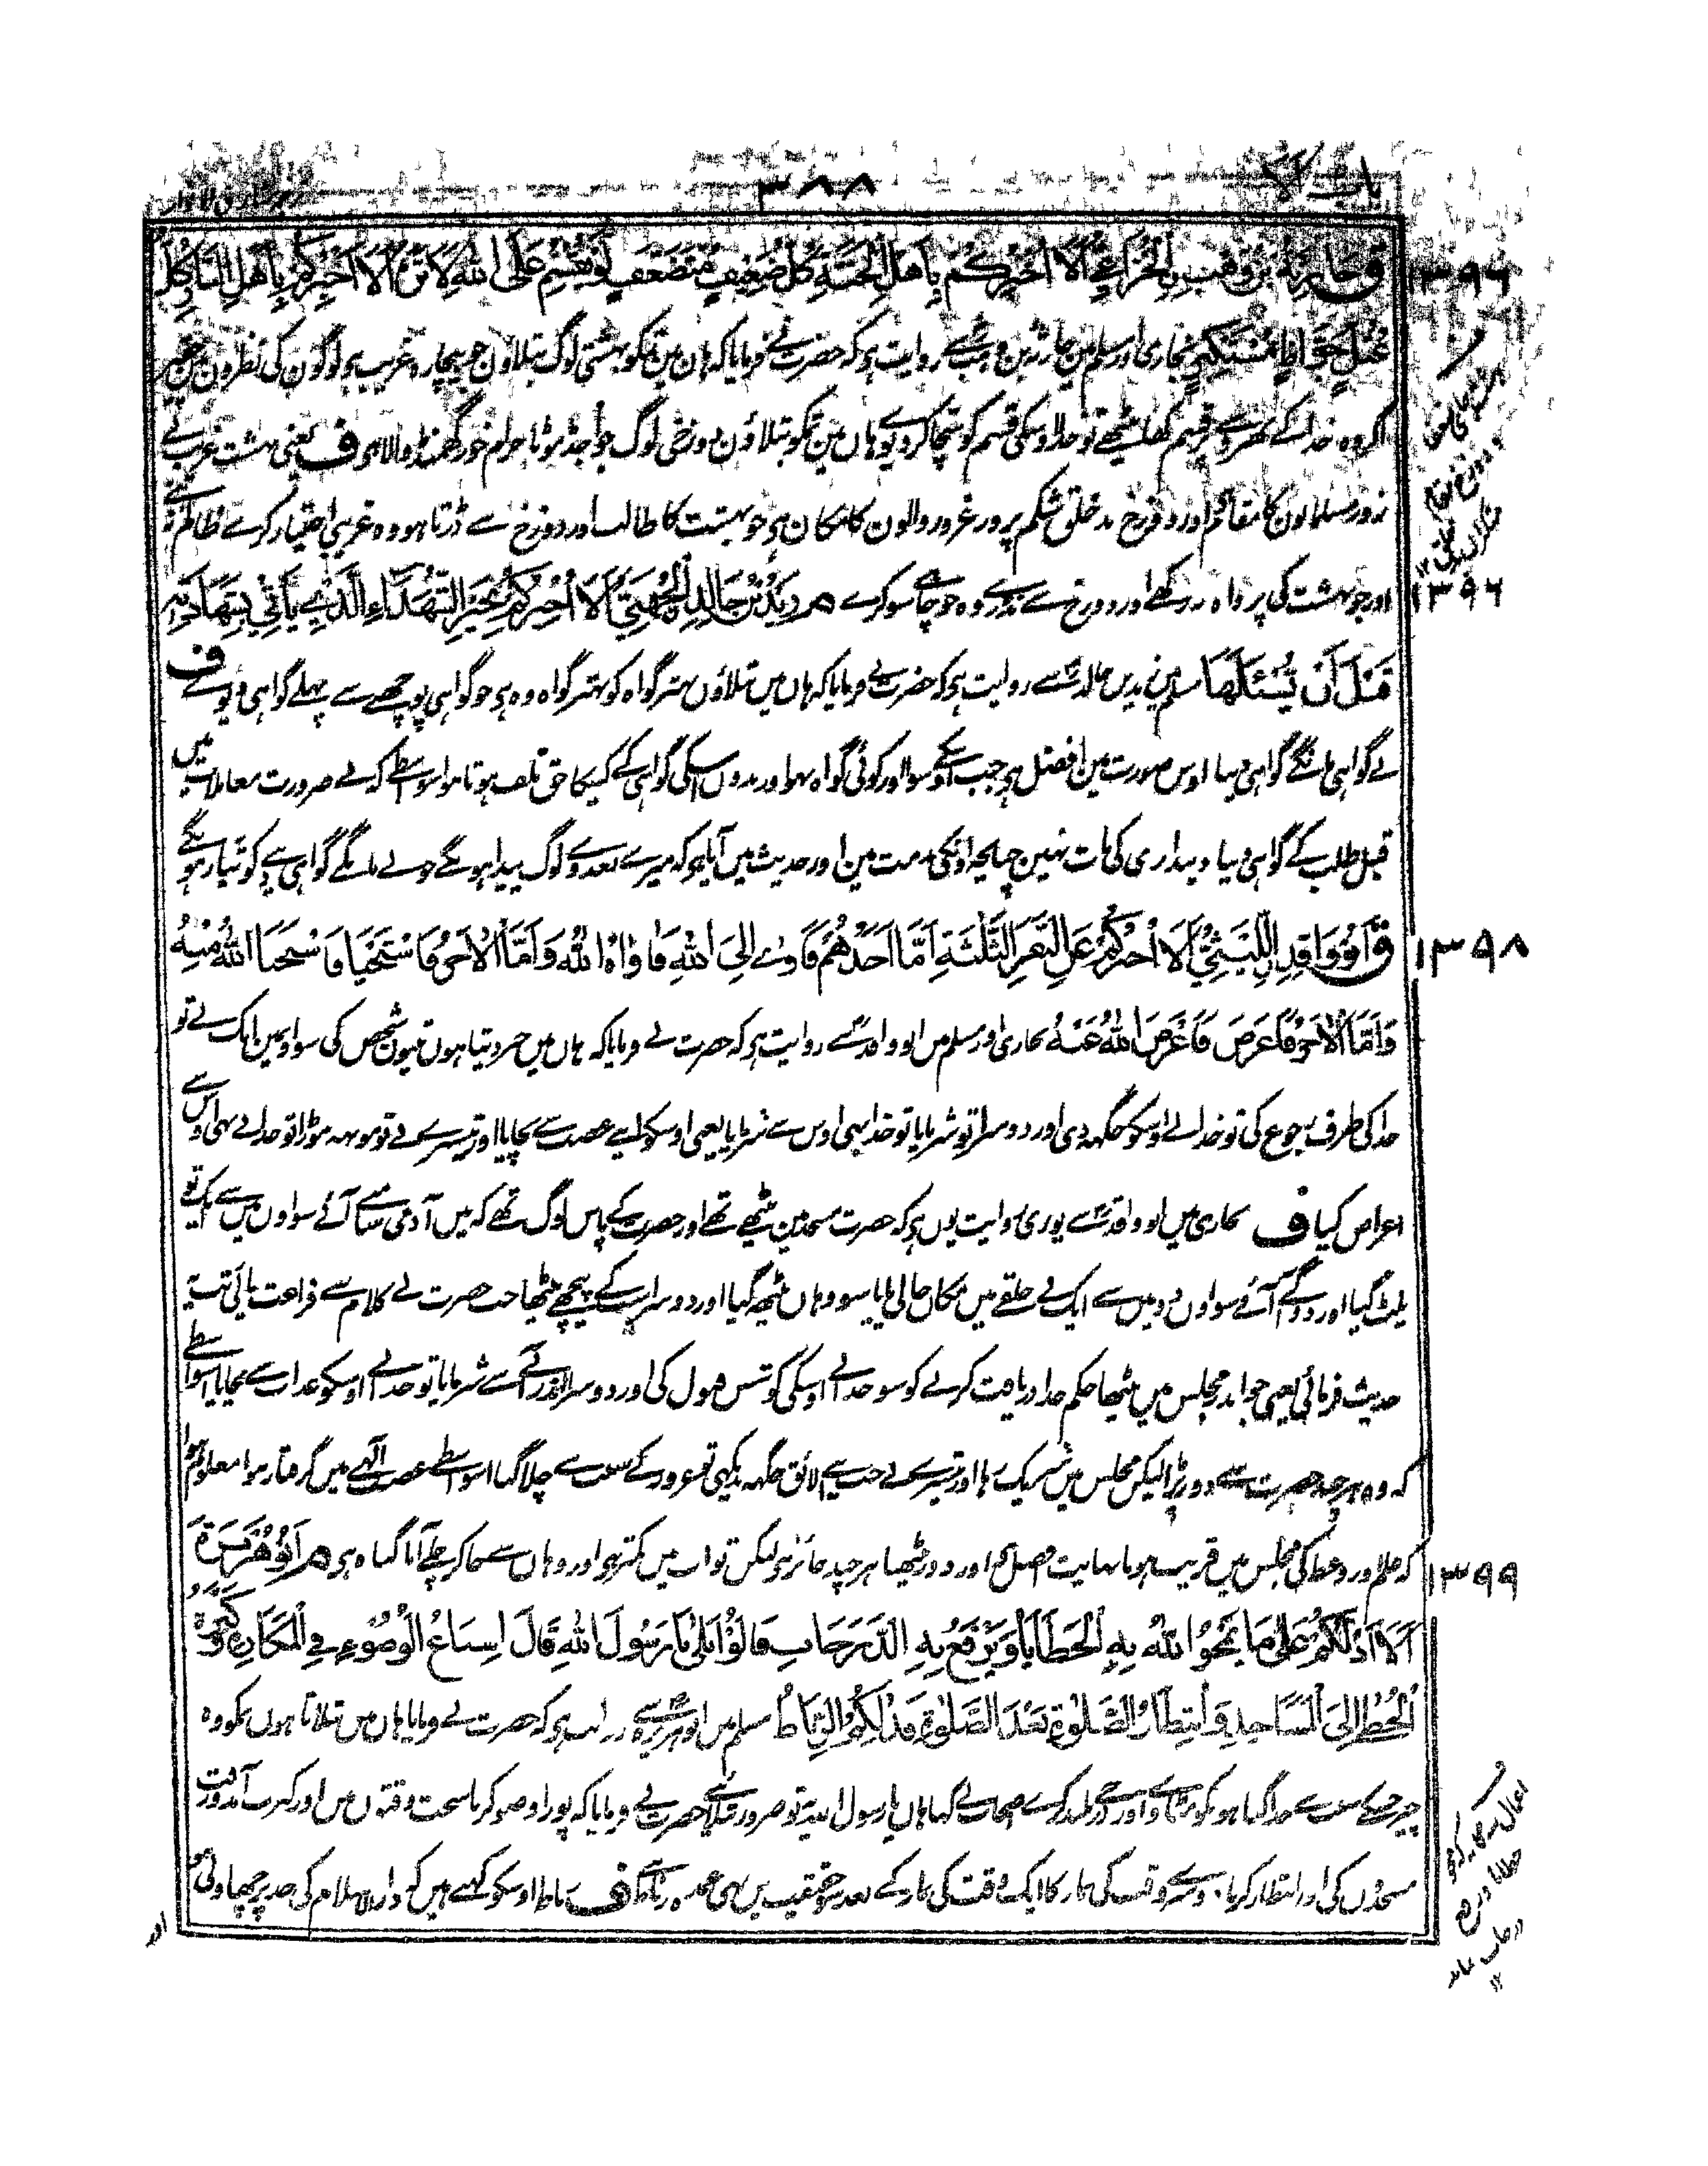 ٣٨٨
ق حارثة بن وهب الخزاعي اَلَا اُخْبِرُكُمْ بِاَهْلِ الْجَنَّةِ كُلُّ ضَعِيْفٍ مُتَضَعَّفٍ لَوْ يُقْسِمُ عَلَى اللهِ لَاَبَرَّهٗ اَلَا اُخْبِرُكُمْ بِاَهْلِ النَّارِ كُلُّ
١٣٩٦
عُتُلٍّ جَوَّاظٍ مُسْتَكْبِرٍ بخاری اور مسلم مین حارثہ بن وہب سے روایت ہی کہ حضرت نے فرمایا کہ ہان مین تمکو بہشتی لوگ بتلاؤن جو بیچارہ غریب ہو لوگون کی نظرون مین حقیر
اگر وہ خدا کے بھروسے پر قسم کھا بیٹھے تو خدا اوسکی قسم کو سچا کر دیوے ہان مین تمکو بتلاؤن دوزخی لوگ جو اجڈ موٹا حرام خور گھمنڈ والا ہو ف یعنی بہشت غریب بے
زور مسلمانون کا مقام ہی اور دوزخ بد خلق شکم پرور غرور والون کا مکان ہی جو بہشت کا طالب اور دوزخ سے ڈرتا ہو وہ غریبی اختیار کرے ظالم نہ
اور جو بہشت کی پرواہ نہ رکھے اور دوزخ سے نہ ڈرے وہ جو چاہے سو کرے م زيد بن خالد الجهني اَلَا اُخْبِرُكُمْ بِخَيْرِ الشُّهَدَاءِ الَّذِيْ يَاْتِيْ بِشَهَادَتِهٖ
١٣٩٧
قَبْلَ اَنْ يُسْئَلَهَا مسلم مین زید بن خالد سے روایت ہی کہ حضرت نے فرمایا کہ ہان مین بتلاؤن بہتر گواہ کو بہتر گواہ وہ ہی جو گواہی پوچھنے سے پہلے گواہی دیوے ف
بے گواہی مانگے گواہی دینا اوس صورت مین افضل ہی جب اوسکے سوا اور کوئی گواہ نہو اور بدون اسکی گواہی کے کسیکا حق تلف ہوتا ہو اسواسطے کہ بے ضرورت معاملات مین
قبل طلب کے گواہی دینا دینداری کی بات نہین چنانچہ اونکی مذمت مین اور حدیث مین آیا ہی کہ میرے بعد وے لوگ پیدا ہونگے جو بے مانگے گواہی دینے کو تیار ہونگے
ق ابو واقد الليثي اَلَا اُخْبِرُكُمْ عَنِ النَّفَرِ الثَّلٰثَةِ اَمَّا اَحَدُهُمْ فَاَوٰى اِلَى اللهِ فَاٰوَاهُ اللهُ وَاَمَّا الْاٰخَرُ فَاسْتَحْيَا فَاسْتَحْيَا اللهُ مِنْهُ
١٣٩٨
وَاَمَّا الْاٰخَرُ فَاَعْرَضَ فَاَعْرَضَ اللهُ عَنْهُ بخاری اور مسلم مین ابو واقد سے روایت ہی کہ حضرت نے فرمایا کہ ہان مین خبر دیتا ہون تینون شخص کی سو اونمین ایک نے تو
خدا کی طرف رجوع کی تو خدا نے اوسکو جگہہ دی اور دوسرا تو شرمایا تو خدا بہی اوس سے شرمایا یعنی اوسکو اپنے غضب سے بچایا اور تیسرے نے تو مونہہ موڑا تو خدا نے بہی اوس سے
اعراض کیا ف بخاری مین ابو واقد سے پوری روایت یون ہی کہ حضرت مسجد مین بیٹھے تھے اور حضرت کے پاس لوگ تھے کہ تین آدمی سامنے آئے سو اون مین سے ایک تو
پلٹ گیا اور دو آگے آئے سو اون دو مین سے ایک نے حلقے مین مکان خالی پایا سو وہان بیٹھ گیا اور دوسرا سب کے پیچھے بیٹھا جب حضرت نے کلام سے فراغت پائی تب یہ
حدیث فرمائی یعنی جو اندر مجلس مین بیٹھا حکم خدا دریافت کرنے کو سو خدا نے اوسکی کوشش قبول کی اور دوسرا اندر آنے سے شرمایا تو خدا نے اوسکو عذاب سے بچایا اسواسطے
کہ وہ ہرچند حضرت سے دور پڑا لیکن مجلس مین شریک رہا اور تیسرے نے جب اپنے لائق جگہہ ندیکھی تو غرور کے سبب سے چلا گیا اسواسطے غضب الٰہی مین گرفتار ہوا معلوم ہوا
کہ علم اور وعظ کی مجلس مین قریب ہونا نہایت افضل ہی اور دور بیٹھنا ہرچند جائز ہی لیکن ثواب مین کمتر ہی اور وہان سے بھاگ کر چلے آنا گناہ ہی م ابو هريرة
١٣٩٩
اَلَا اَدُلُّكُمْ عَلٰى مَا يَمْحُو اللهُ بِهِ الْخَطَايَا وَيَرْفَعُ بِهِ الدَّرَجَاتِ قَالُوْا بَلٰى يَا رَسُوْلَ اللهِ قَالَ اِسْبَاغُ الْوُضُوْءِ فِي الْمَكَارِهِ وَكَثْرَةُ
الْخُطَا اِلَى الْمَسَاجِدِ وَانْتِظَارُ الصَّلٰوةِ بَعْدَ الصَّلٰوةِ فَذٰلِكُمُ الرِّبَاطُ مسلم مین ابو ہریرہ سے روایت ہی کہ حضرت نے فرمایا ہان مین بتلاتا ہون تمکو وہ
چیز جسکے سبب سے خدا گناہونکو مٹاوے اور درجے بلند کرے صحابہ نے کہا ہان یا رسول اللہ یہ تو ضرور بتلائیے حضرت نے فرمایا کہ پورا وضو کرنا سخت وقتون مین اور کثرت آمد و رفت
مسجدون کی اور انتظار کرنا دوسرے وقت کی نماز کا ایک وقت کی نماز کے بعد سو حقیقت مین یہی عمدہ رباط ہی ف رباط اوسکو کہتے ہین کہ دار الاسلام کی حد پر چھاونی ہو
اور